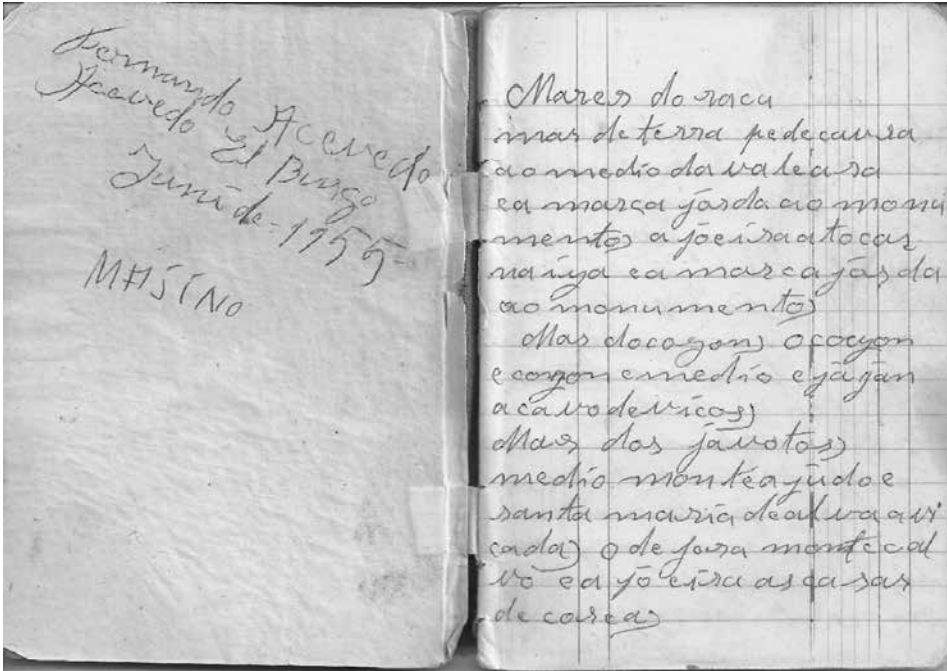 Fernando Acevedo
Acevedo El Burgo
Juni de-1955-
MASINO
Mares do racu
mar de terra pedecausa
ao medio da valeasa
ea marca jasda ao monu
mentos a joeisa atocar
naiya ea marca jasda
ao monumentos
Mar docagons ococyon
e conyon emedio e jajan
acavodevicos
Mar dos javotos
medio monteajudo e
santa maria dealvaavi
cada) o de fora montecal
vo ea joeisa ascasas
de coreas